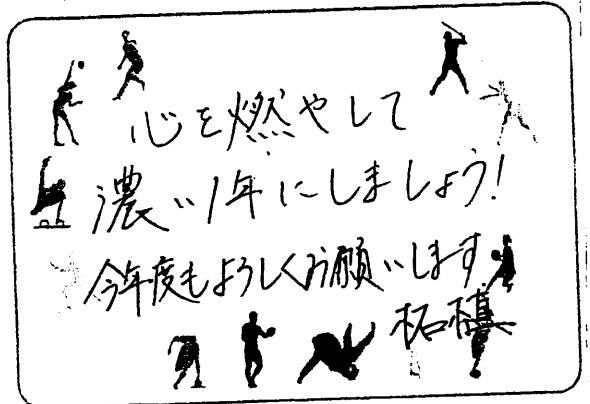 心を燃やして
濃い1年にしましょう!
今年度もよろしくお願いします
柘植